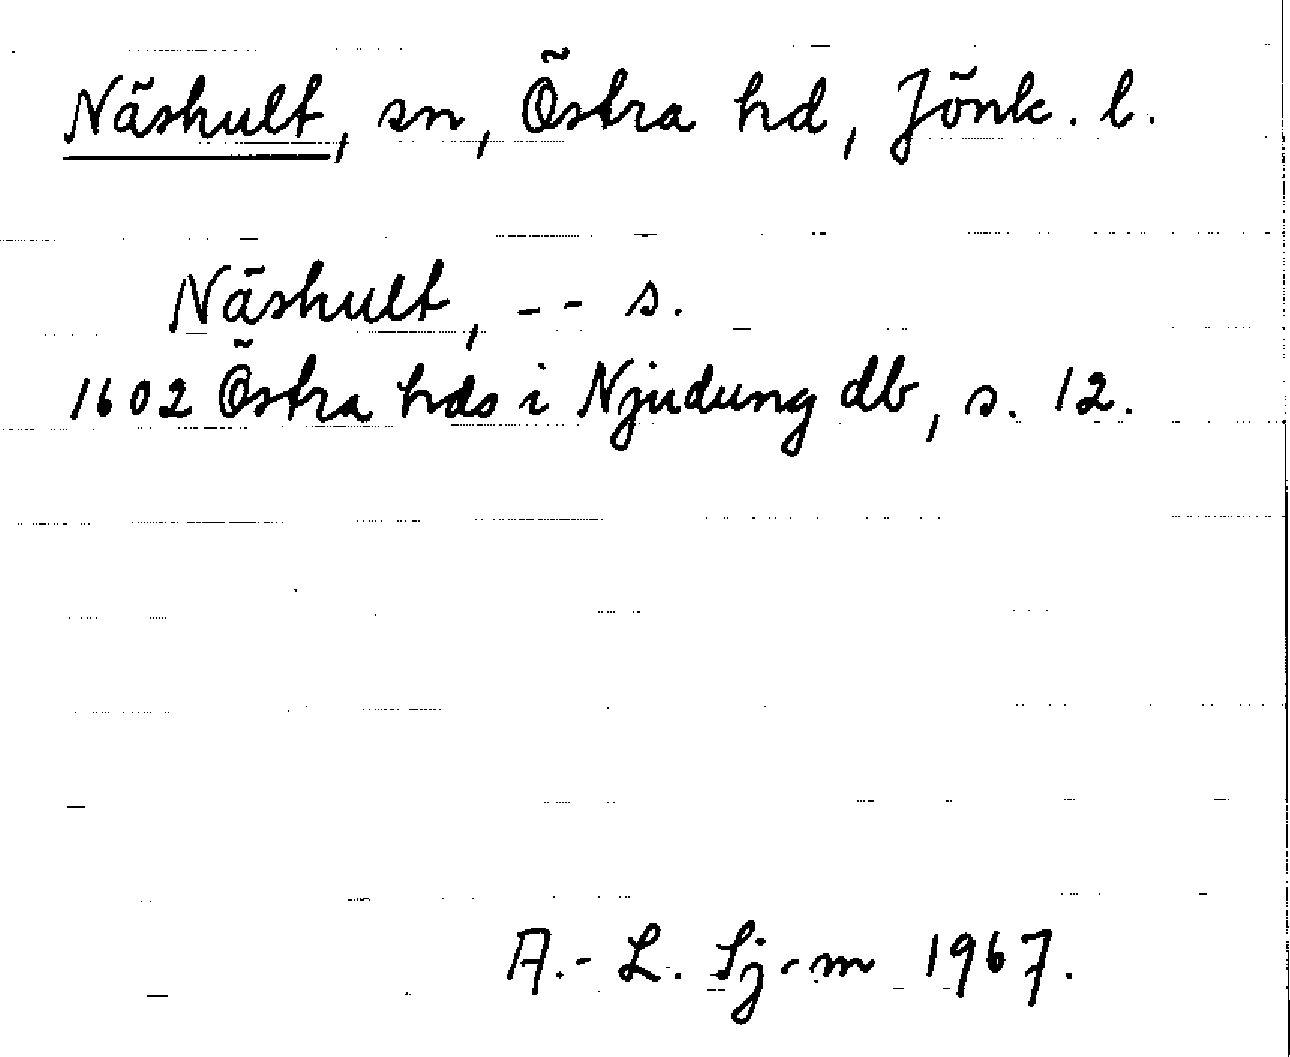 Näshult, sn, Östra hd, Jönk. l.
Näshult, -- s.
1602 Östra hds i Njudung db, s. 12.
A.-L. Sj-m 1967.